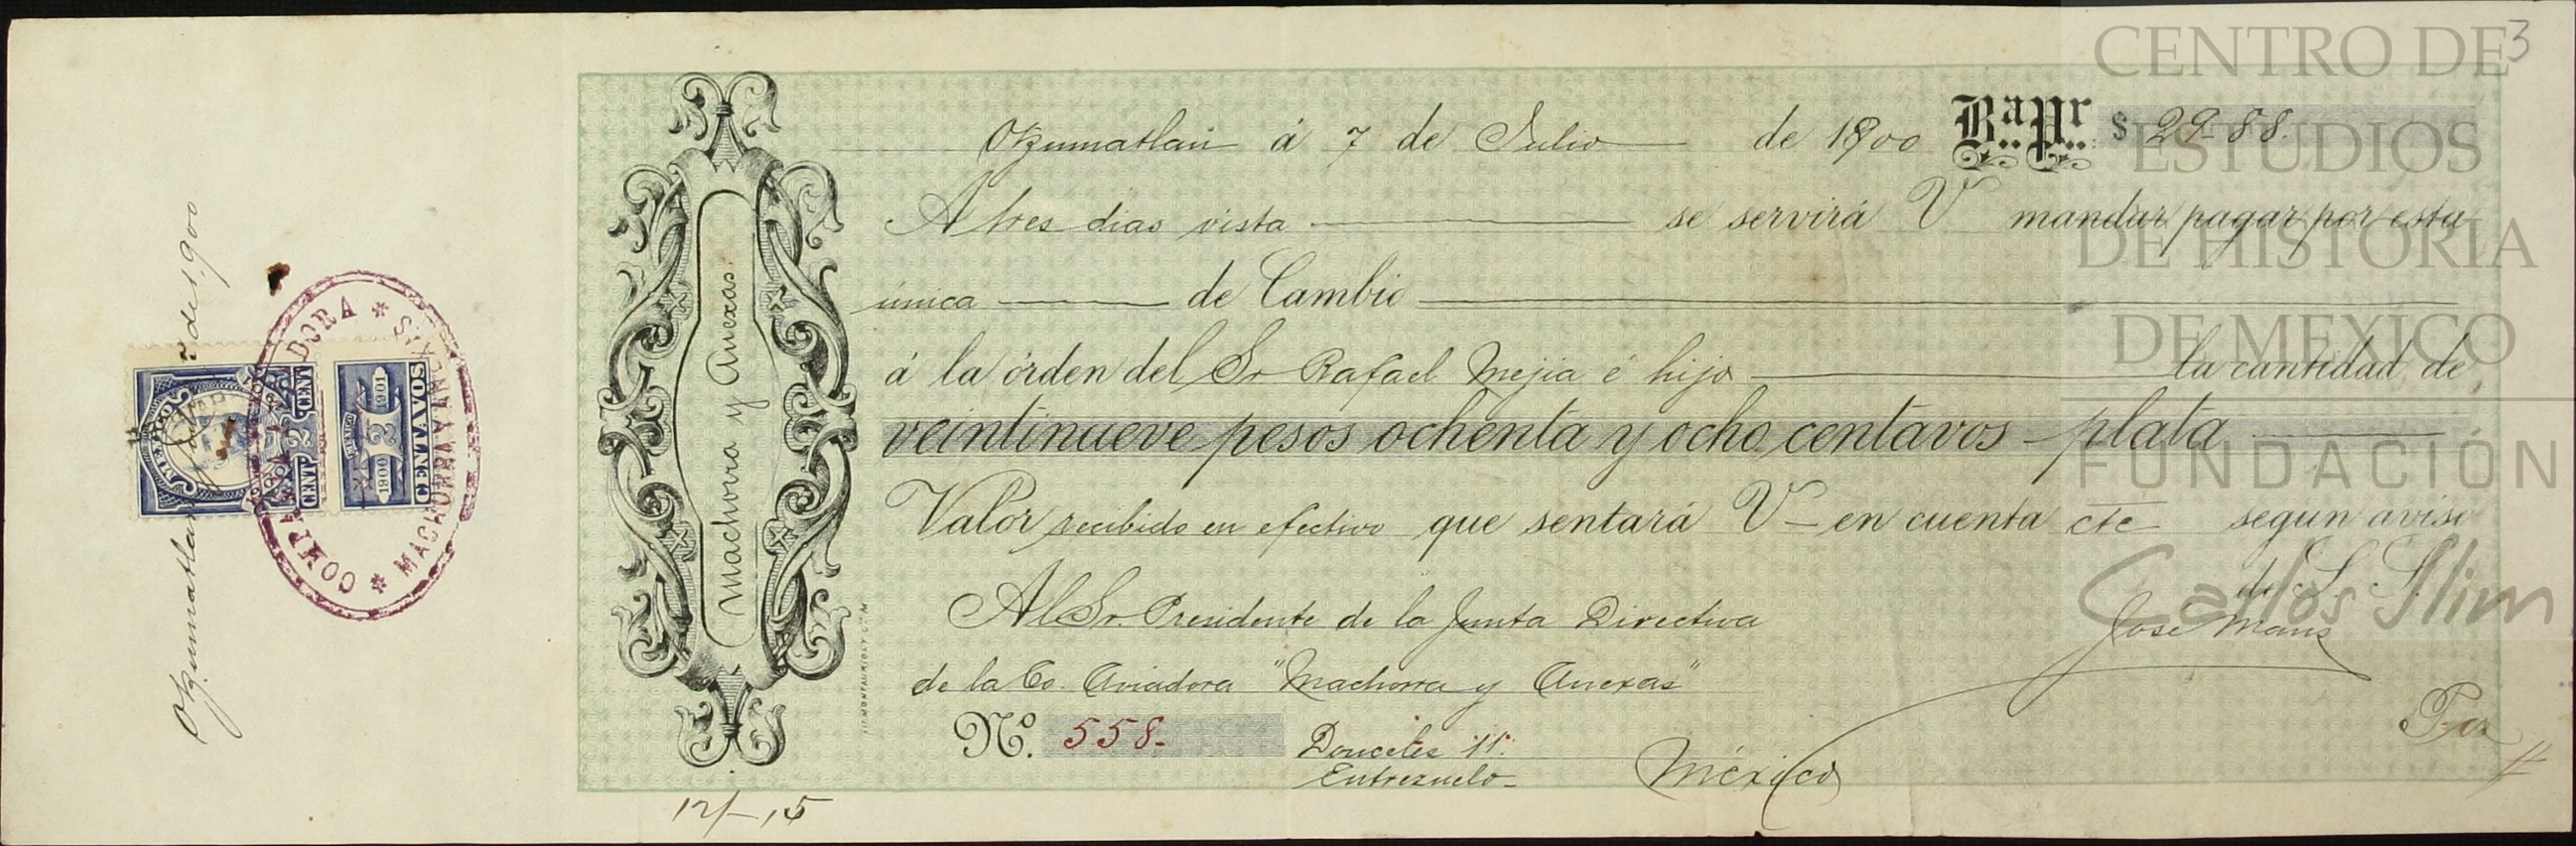 3
CENTRO DE
ESTUDIOS
DE HISTORIA
DE MEXICO
FUNDACIÓN
Carlos Slim
Otzumatlan á 7 de Julio de 1900 Ba. Pr. $ 29-88.
A tres dias vista se servirá V mandar pagar por esta
única de Cambio
á la órden del Sr Rafael Mejia é hijo la cantidad de
veintinueve pesos ochenta y ocho centavos - plata
Valor recibido en efectivo que sentará V en cuenta cte segun aviso
de S. S.
Al Sr. Presidente de la Junta Directiva
de la Co. Aviadora "Machorra y Anexas"
Nº. 558.
Donceles 11.
Entrezuelo
México
12/-15
Machorra y Anexas.
COMPAÑIA AVIADORA * MACHORRA Y ANEXAS *
MEXICO
2 CENT CENT 2
MEXICO
1900 2 1901
CENTAVOS
Otzumatlan Julio 7 de 1.900